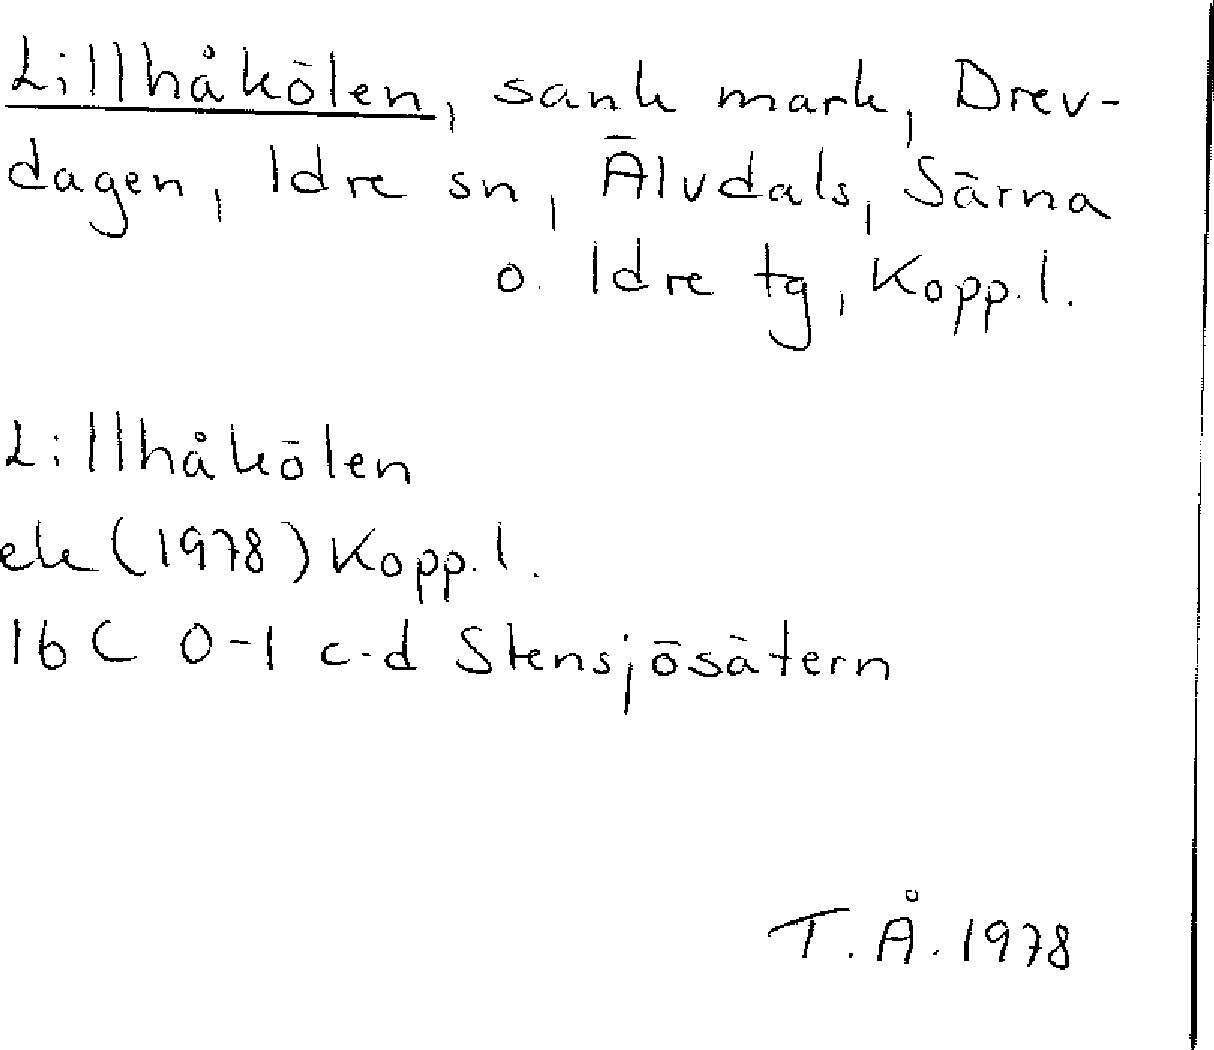 Lillhåkölen, sank mark, Drev-
dagen, Idre sn, Älvdals, Särna
o. Idre tg, Kopp.l.
Lillhåkölen
ek (1978) Kopp.l.
16C 0-1 c-d Stensjösätern
T.Å. 1978